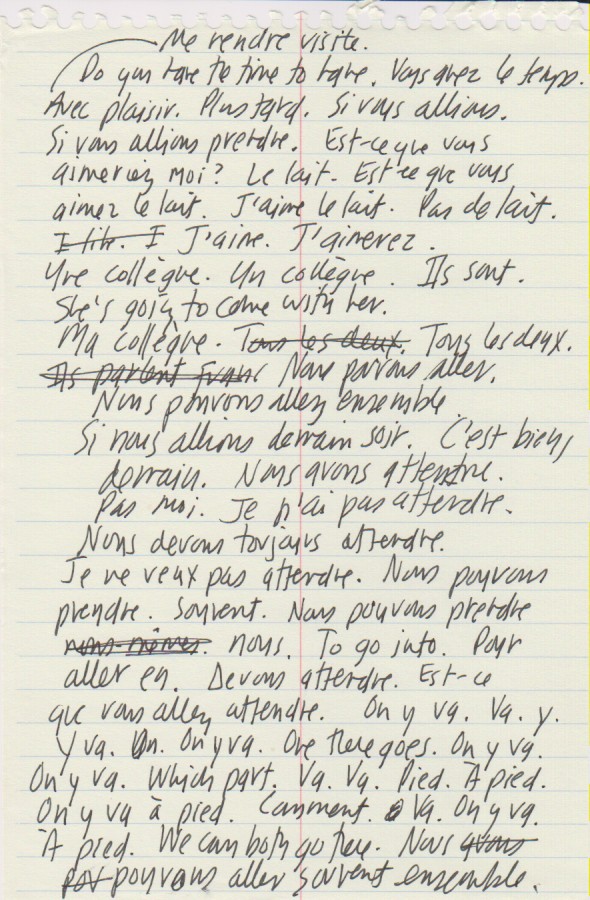 Me rendre visite.
Do you have the time to have. Vous avez le temps.
Avec plaisir. Plus tard. Si vous allions.
Si vous allions prendre. Est-ce que vous
aimeriez moi? Le lait. Est-ce que vous
aimez le lait. J'aime le lait. Pas de lait.
I like. I J'aime. J'aimerez.
Une collègue. Un collègue. Ils sont.
She's going to come with her.
Ma collègue. Tous les deux. Tous les deux.
Ils parlent franc Nous pouvons aller.
Nous pouvons allez ensemble
Si nous allions demain soir. C'est bien,
demain. Nous avons attendre.
Pas moi. Je n'ai pas attendre.
Nous devons toujours attendre.
Je ne veux pas attendre. Nous pouvons
prendre. Souvent. Nous pouvons prendre
nous-mêmes. nous. To go into. Pour
aller en. Devons attendre. Est-ce
que vous allez attendre. On y va. Va. y.
Y va. On. On y va. One there goes. On y va.
On y va. Which part. Va. Va. Pied. À pied.
On y va à pied. Comment. Va. On y va.
À pied. We can both go there. Nous avons
pou pouvons aller souvent ensemble.